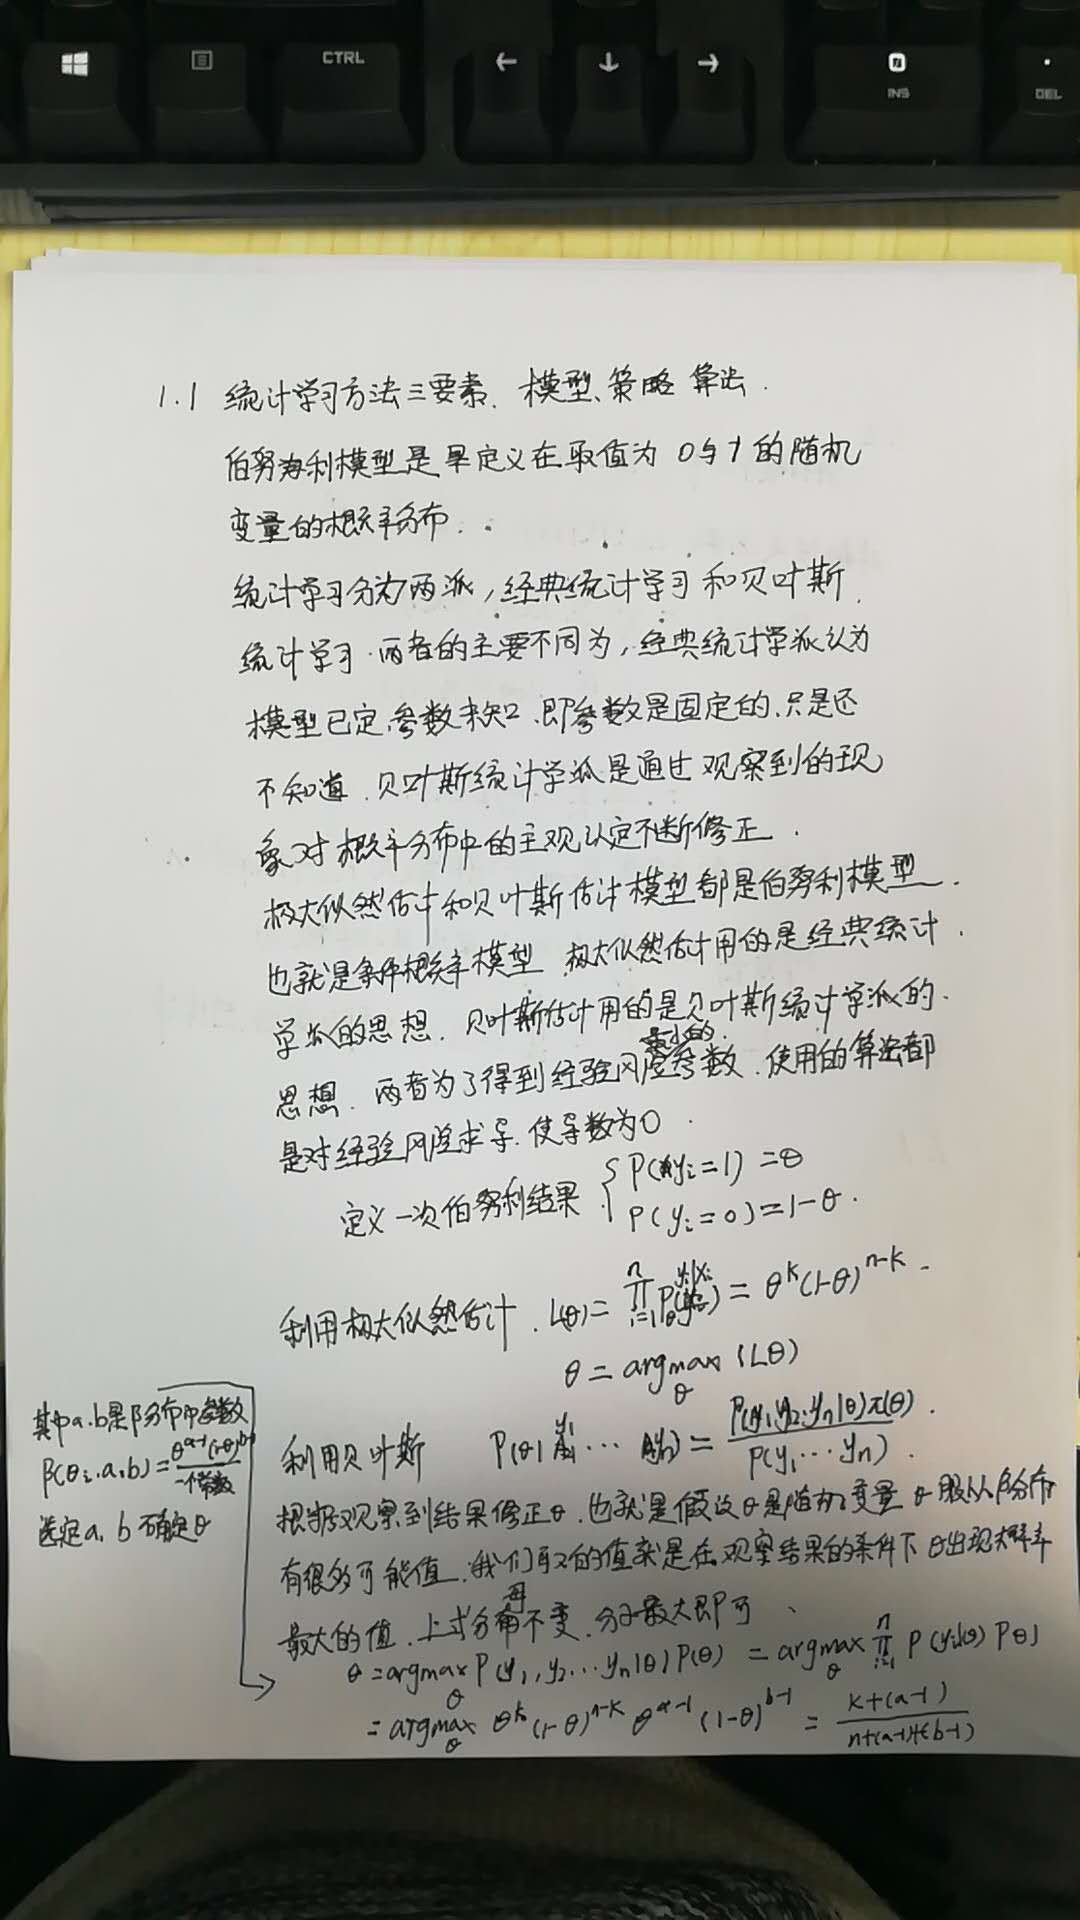 CTRL
INS
DEL
1.1 统计学习方法三要素、模型、策略 算法.
伯努利模型是 是定义在取值为 0与1 的随机
变量的概率分布.
统计学习分为两派，经典统计学习 和贝叶斯
统计学习.两者的主要不同为，经典统计学派认为
模型已定,参数未知.即参数是固定的,只是还
不知道.贝叶斯统计学派是通过 观察到的现
象对 概率分布中的主观认定不断修正.
极大似然估计和贝叶斯估计模型都是伯努利模型.
也就是条件概率模型 极大似然估计用的是经典统计.
学派的思想.贝叶斯估计用的是贝叶斯统计学派的.
最小的.
思想.两者为了得到经验风险参数.使用的算法都
是对经验风险求导.使导数为0.
定义一次伯努利结果 { P(yi=1)=θ
P(yi=0)=1-θ.
利用极大似然估计. L(θ)= ∏ i=1 n = θ^k(1-θ)^{n-k}
θ = argmax θ (Lθ)
其中a.b是β分布中参数
β(θi.a,b)= θ^{a-1}(1-θ)^{b-1} / 一个常数
选定a,b 确定θ
利用贝叶斯 P(θ| y1 ··· yn) = P(y1,y2,yn|θ)π(θ) / P(y1···yn).
根据观察到结果修正θ.也就是假设θ是随机变量 θ服从β分布
有很多可能值.我们取的值就是在观察结果的条件下 θ出现概率
最大的值.上式分母不变.分子最大即可.
θ=argmax θ P(y1,y2···yn|θ)P(θ) = argmax θ ∏ i=1 n P(yi|θ) P(θ)
= argmax θ θ^k(1-θ)^{n-k} θ^{a-1} (1-θ)^{b-1} = k+(a-1) / n+(a-1)+(b-1)